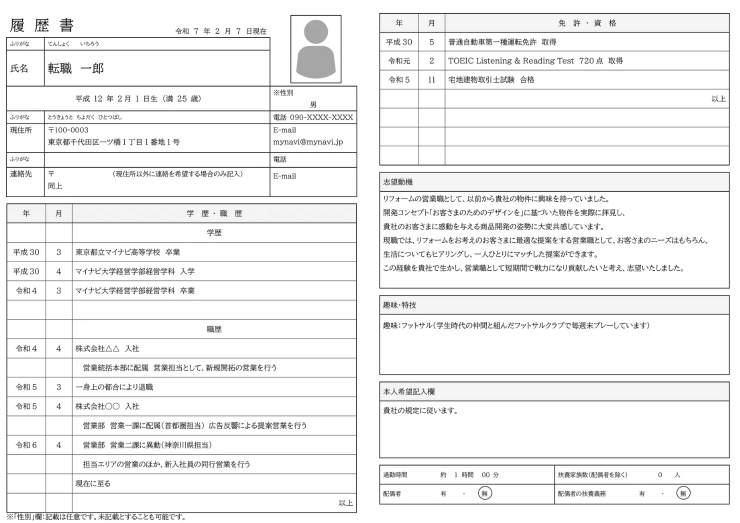 履歴書
令和 7 年 2 月 7 日現在
ふりがな てんしょく いちろう
氏名 転職 一郎
平成 12 年 2 月 1 日生 (満 25 歳)
※性別
男
ふりがな とうきょうと ちよだく ひとつばし
電話 090-XXXX-XXXX
現住所 〒100-0003
東京都千代田区一ツ橋1丁目1番地1号
E-mail
mynavi@mynavi.jp
ふりがな
電話
連絡先 〒 (現住所以外に連絡を希望する場合のみ記入)
同上
E-mail
年 月 学 歴 ・ 職 歴
学歴
平成30 3 東京都立マイナビ高等学校 卒業
平成30 4 マイナビ大学経営学部経営学科 入学
令和4 3 マイナビ大学経営学部経営学科 卒業
職歴
令和4 4 株式会社△△ 入社
営業統括本部に配属 営業担当として、新規開拓の営業を行う
令和5 3 一身上の都合により退職
令和5 4 株式会社○○ 入社
営業部 営業一課に配属(首都圏担当) 広告反響による提案営業を行う
令和6 4 営業部 営業二課に異動(神奈川県担当)
担当エリアの営業のほか、新入社員の同行営業を行う
現在に至る
以上
※「性別」欄:記載は任意です。未記載とすることも可能です。
年 月 免 許 ・ 資 格
平成30 5 普通自動車第一種運転免許 取得
令和元 2 TOEIC Listening & Reading Test 720点 取得
令和5 11 宅地建物取引士試験 合格
以上
志望動機
リフォームの営業職として、以前から貴社の物件に興味を持っていました。
開発コンセプト「お客さまのためのデザインを」に基づいた物件を実際に拝見し、
貴社のお客さまに感動を与える商品開発の姿勢に大変共感しています。
現職では、リフォームをお考えのお客さまに最適な提案をする営業職として、お客さまのニーズはもちろん、
生活についてもヒアリングし、一人ひとりにマッチした提案ができます。
この経験を貴社で生かし、営業職として短期間で戦力になり貢献したいと考え、志望いたしました。
趣味・特技
趣味:フットサル(学生時代の仲間と組んだフットサルクラブで毎週末プレーしています)
本人希望記入欄
貴社の規定に従います。
通勤時間 約 1 時間 00 分
扶養家族数(配偶者を除く) 0 人
配偶者 有 ・ 無
配偶者の扶養義務 有 ・ 無